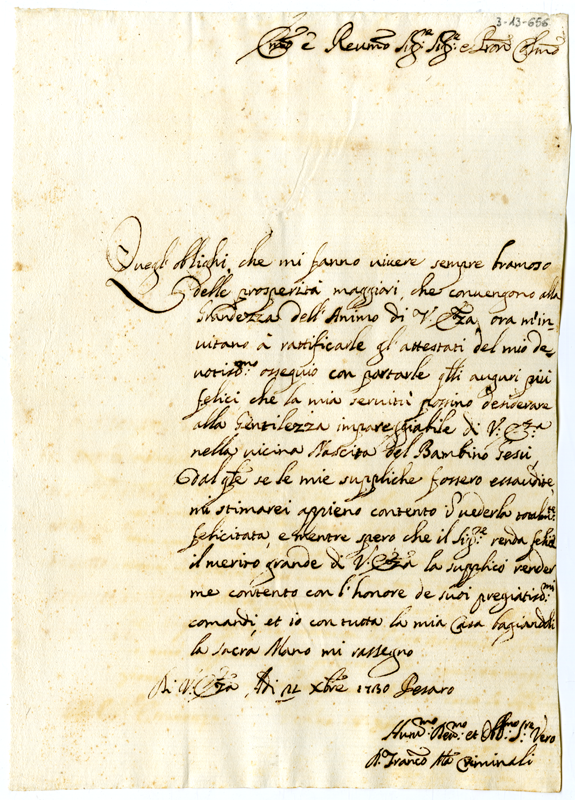 3-13-656
Em̃o e Reumo Sigre Sigre e Pron Colmo
Quegl' oblighi, che mi fanno uiuere sempre bramoso
delle prosperità maggiori, che conuengono alla
Grandezza dell'Animo di V. Eza, ora m'in-
uitano à rattificarle gl'attestati del mio de-
uotissmo ossequio con portarle gli auguri più
felici che la mia seruitù possino desiderare
alla Gentilezza impareggiabile di V. Eza
nella uicina Nascita del Bambino Gesù
dal qle se le mie suppliche fossero essaudite
mi stimarei appieno contento d'uederla totalmte
felicitata, e mentre spero che il Sigre renda felice
il merito grande di V. Eza la supplico render
me contento con l'honore de suoi pregiatissmi
comandi, et io con tutta la mia Casa bagiandoli
la sacra Mano mi rassegno
Di V. Eza, Adi 21 Xbre 1730 Pesaro
Humo Deumo et Obmo Sre Vero
D. Franco Criminali